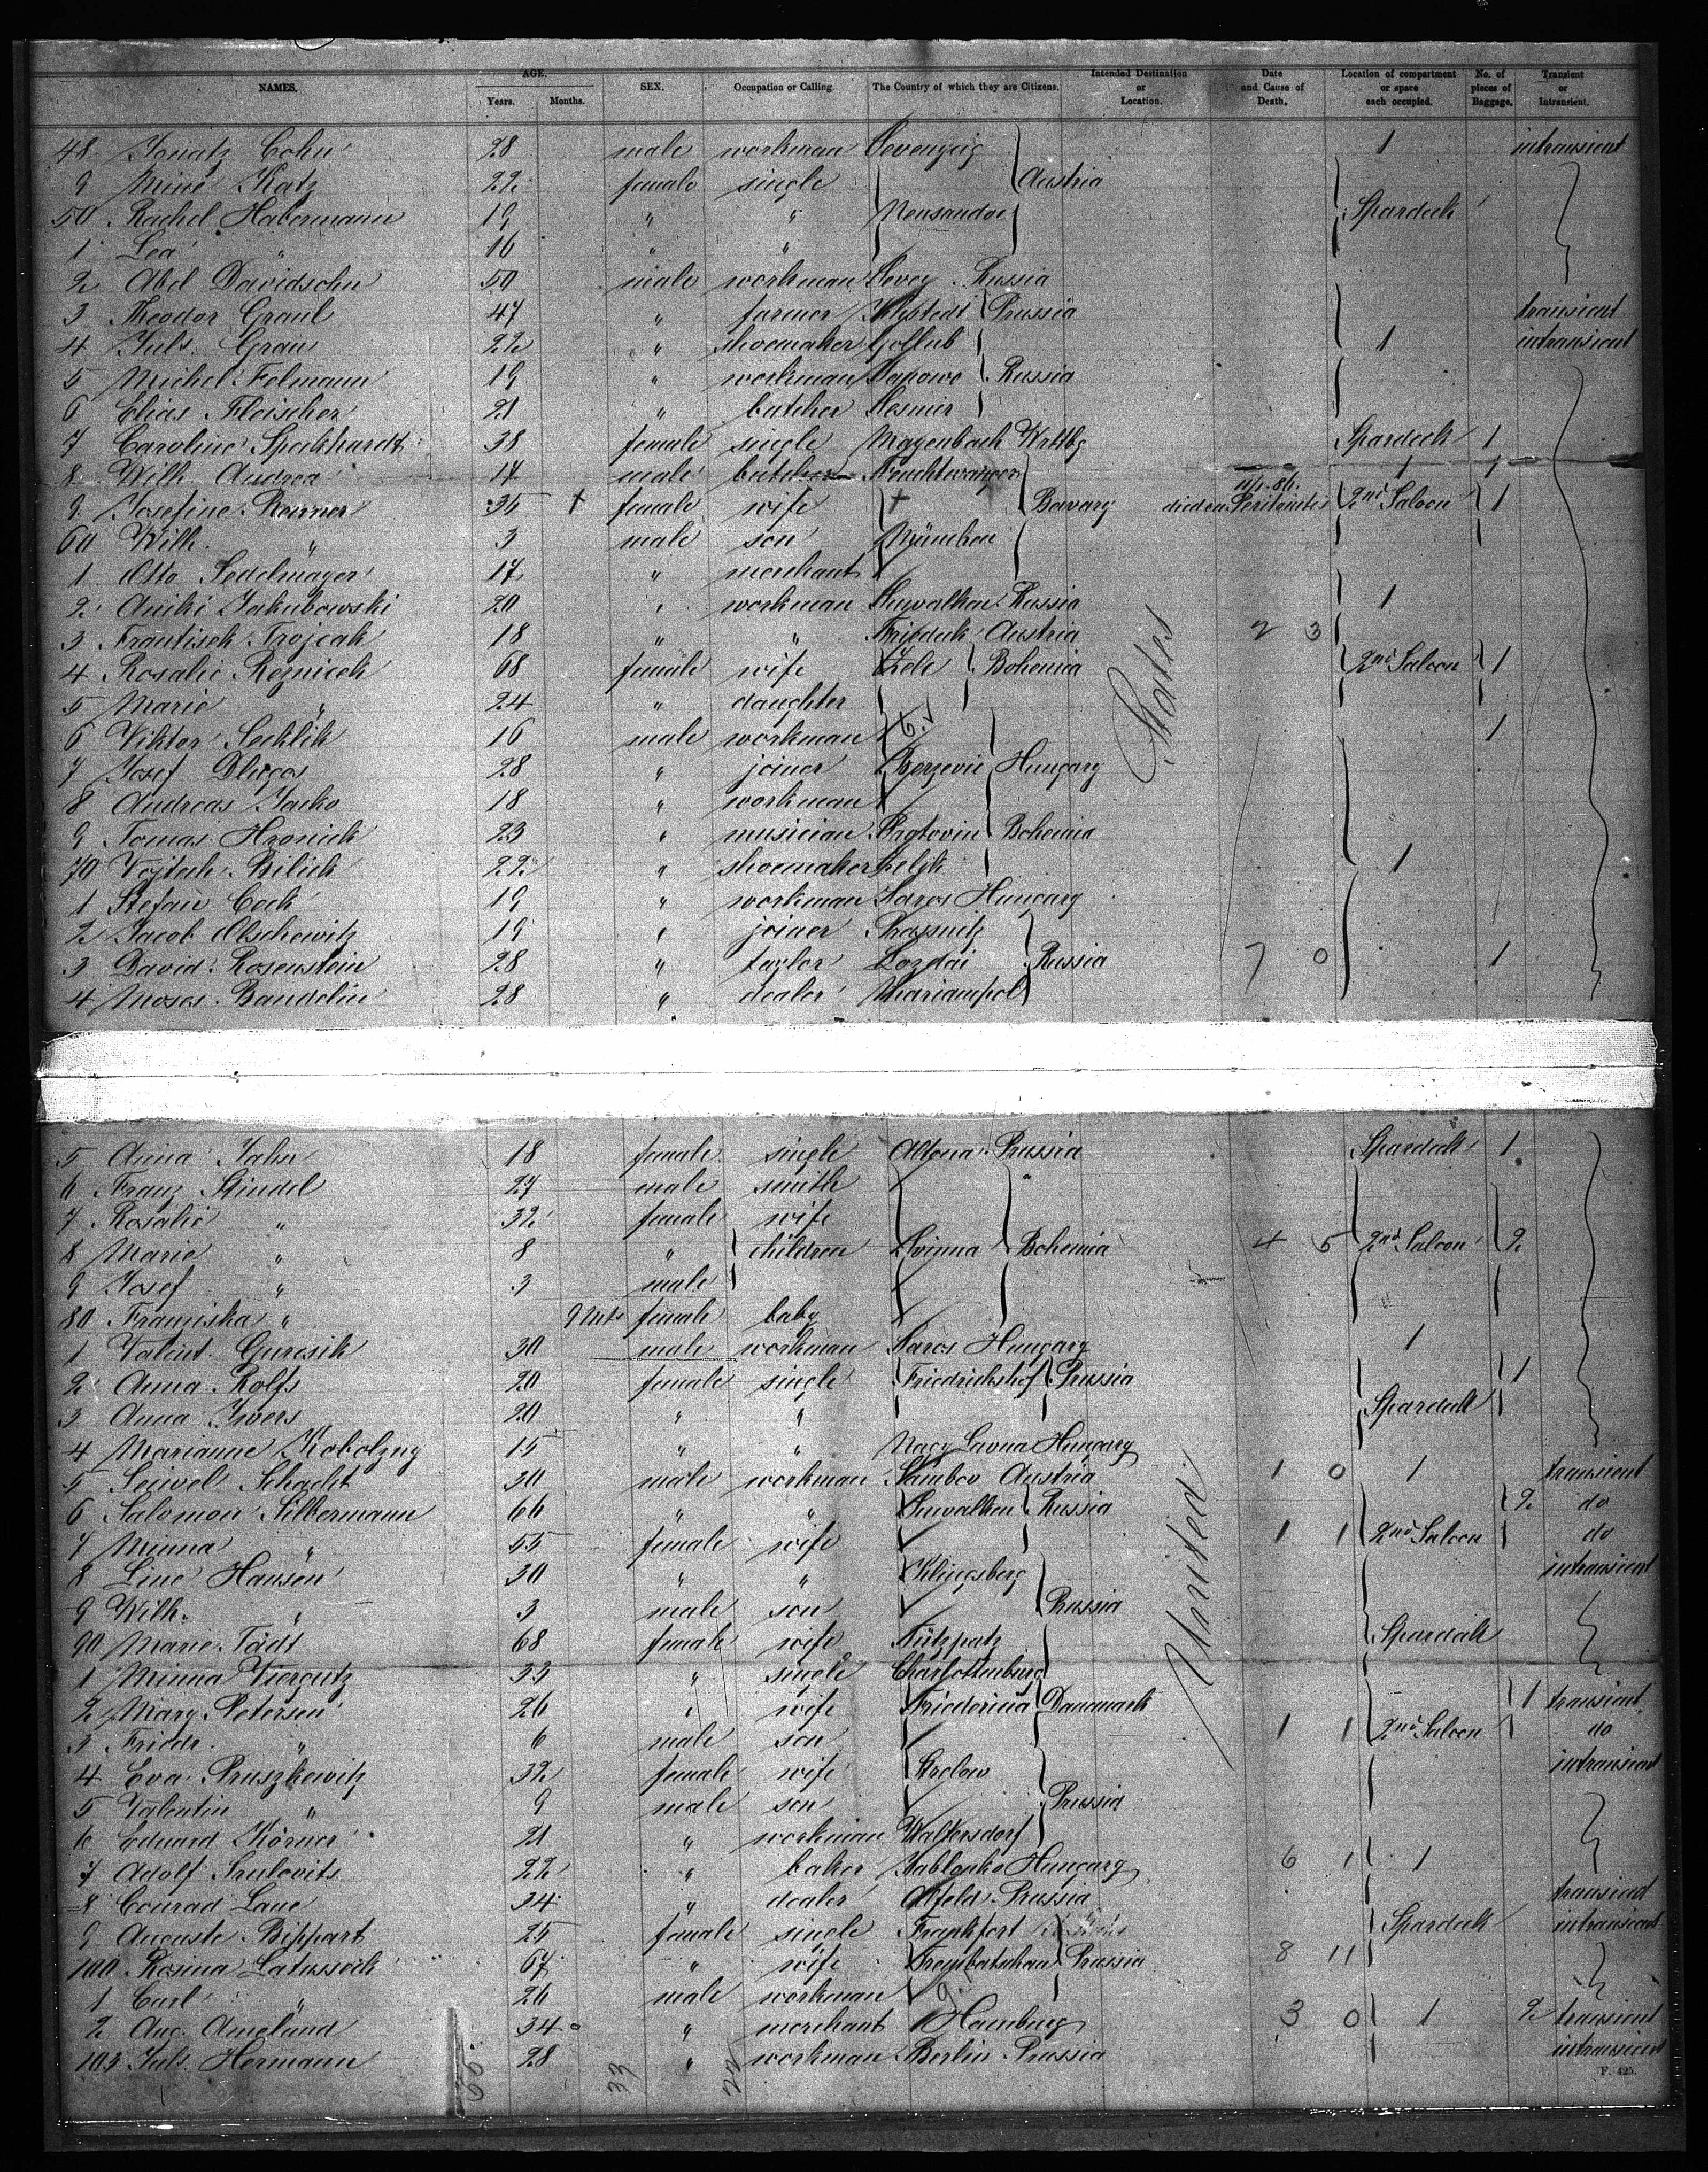 NAMES. AGE. Years. Months. SEX. Occupation or Calling. The Country of which they are Citizens. Intended Destination or Location. Date and Cause of Death. Location of compartment or space each occupied. No. of pieces of Baggage. Transient or Intransient.
48 Ignatz Cohn 28 male workman 1 intransient
9 Mine Katz 22 female single Austria
50 Rachel Habermann 19 " " Neusandec Spardeck
1 Lea " 16 " "
2 Abel Davidsohn 50 male workman Russia
3 Theodor Graul 47 " farmer Prussia transient
4 Juls. Grau 22 " shoemaker Gollub 1 intransient
5 Michel Felmann 19 " workman Russia
6 Elias Fleischer 21 " butcher
7 Caroline Speckhardt 38 female single Magenbach Wrttbg Spardeck 1
8 Wilh. Andrea 17 male butcher Feuchtwangen 1 1
9 Josefine Renner 35 † female wife † Bavary died on 11/1.86. Peritonitis 2nd Saloon 1
60 Wilh. " 3 male son München
1 Otto Sedelmayer 17 " merchant
2 Aniki Jakubowski 20 " workman Suwalken Russia 1
3 Frantisek Trojcak 18 " " Friedek Austria 2 3
4 Rosalie Reznicek 68 female wife Zele Bohemia 2nd Saloon 1
5 Marie " 24 " daughter
6 Viktor Sedlik 16 male workman 6 1
7 Josef Dlugos 28 " joiner Berzevic Hungary
8 Andreas Jacko 18 " workman
9 Tomas Hronick 23 " musician Protovin Bohemia
70 Vojtech Bilick 22 " shoemaker 1
1 Stefan Ceck 19 " workman Saros Hungary
2 Jacob Olschewitz 19 " joiner Prassnitz
3 David Rosenstein 28 " taylor Lozdai Russia 7 0 1
4 Moses Bandelin 28 " dealer Mariampol
States
5 Anna Jahn 18 female single Altona Prussia Spardeck 1
6 Franz Stindel 27 male smith
7 Rosalie " 32 female wife
8 Marie " 8 " children Svinna Bohemia 4 5 2nd Saloon 2
9 Josef " 3 male
80 Franziska " 9 Mts female baby
1 Valent. Guresik 30 male workman Saros Hungary 1
2 Anna Rolfs 20 female single Friedrichshof Prussia 1
3 Anna Ivers 20 " " Spardeck
4 Marianne Kobolzny 15 " " Nagy Hungary
5 Seiwel Schacht 30 male workman Sambov Austria 1 0 1 transient
6 Salomon Silbermann 66 " " Suwalken Russia 2 do
7 Minna " 55 female wife 1 1 2nd Saloon do
8 Line Hansen 30 " " Klingsberg intransient
9 Wilh. " 3 male son Prussia
90 Marie Tädt 68 female wife Spardeck
1 Minna Viergutz 33 " single Charlottenburg
2 Mary Petersen 26 " wife Fridericia Danmark 1 transient
3 Friedr. " 6 male son 1 1 2nd Saloon do
4 Eva Pruszkewitz 32 female wife intransient
5 Valentin " 9 male son Prussia
6 Eduard Körner 21 " workman Waltersdorf
7 Adolf Srulovits 22 " baker Jablonko Hungary 6 1 1
8 Conrad Laue 34 " dealer Alfeld Prussia transient
9 Auguste Bippart 25 female single Frankfort Spardeck intransient
100 Rosina Latusseck 67 " wife Prussia 8 11
1 Carl " 26 male workman 9
2 Aug. Amelund 34 " merchant Hamburg 3 0 1 2 transient
103 Juls. Hermann 28 " workman Berlin Prussia intransient
United
33
F. 425.